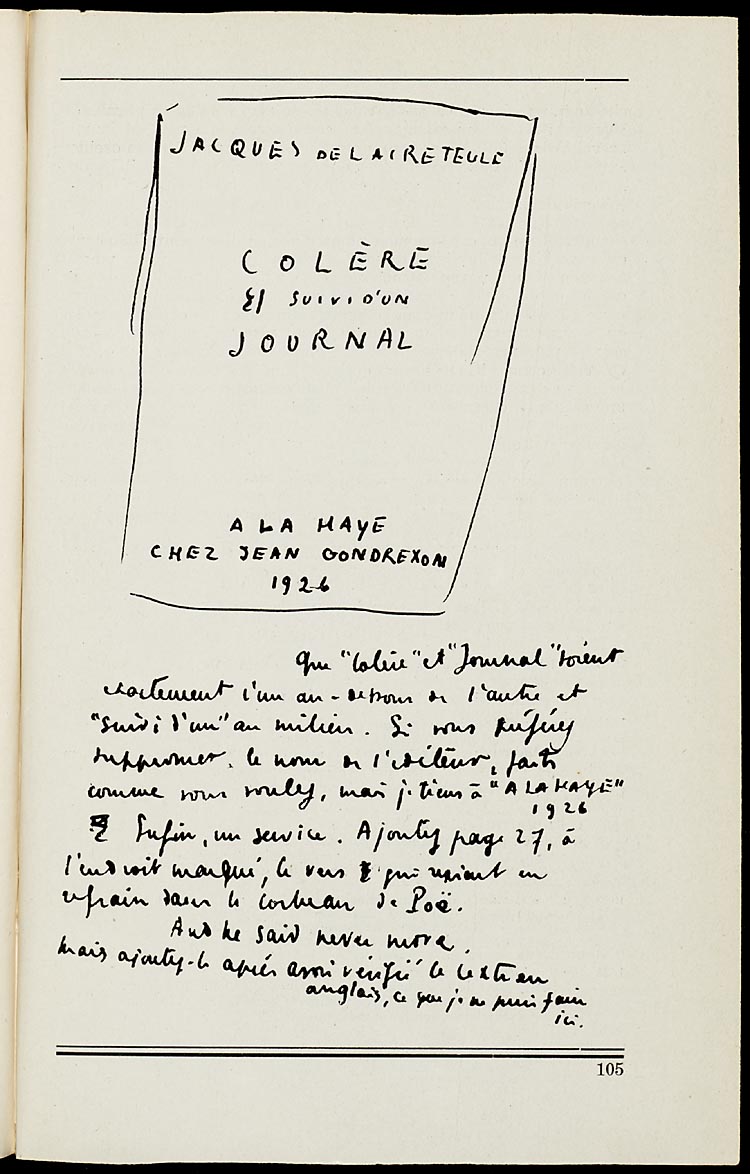 JACQUES DE LACRETELLE
COLÈRE
SUIVI D'UN
JOURNAL
A LA HAYE
CHEZ JEAN GONDREXON
1926
Que "Colère" et "Journal" soient
exactement l'un au-dessous de l'autre et
"suivi d'un" au milieu. Si vous préférez
supprimer le nom de l'éditeur, faites
comme vous voulez, mais je tiens à "A LA HAYE"
1926
Enfin, un service. Ajoutez page 27, à
l'endroit marqué, le vers qui revient en
refrain dans le corbeau de Poë.
And he said never more.
Mais ajoutez-le après avoir vérifié le texte en
anglais, ce que je ne puis faire
ici.
105